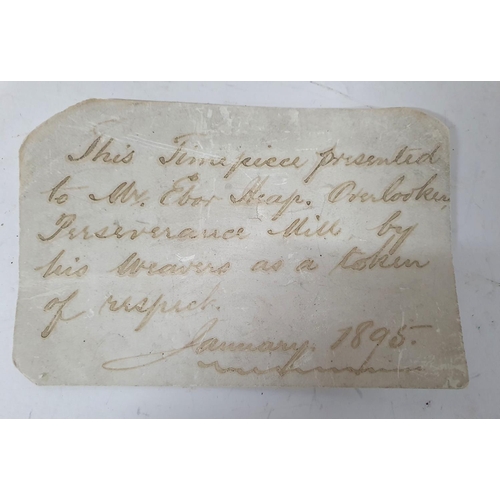 This Timepiece presented
to Mr. Ebor Heap. Overlooker,
Perseverance Mill, by
his Weavers as a token
of respect.
January, 1895.